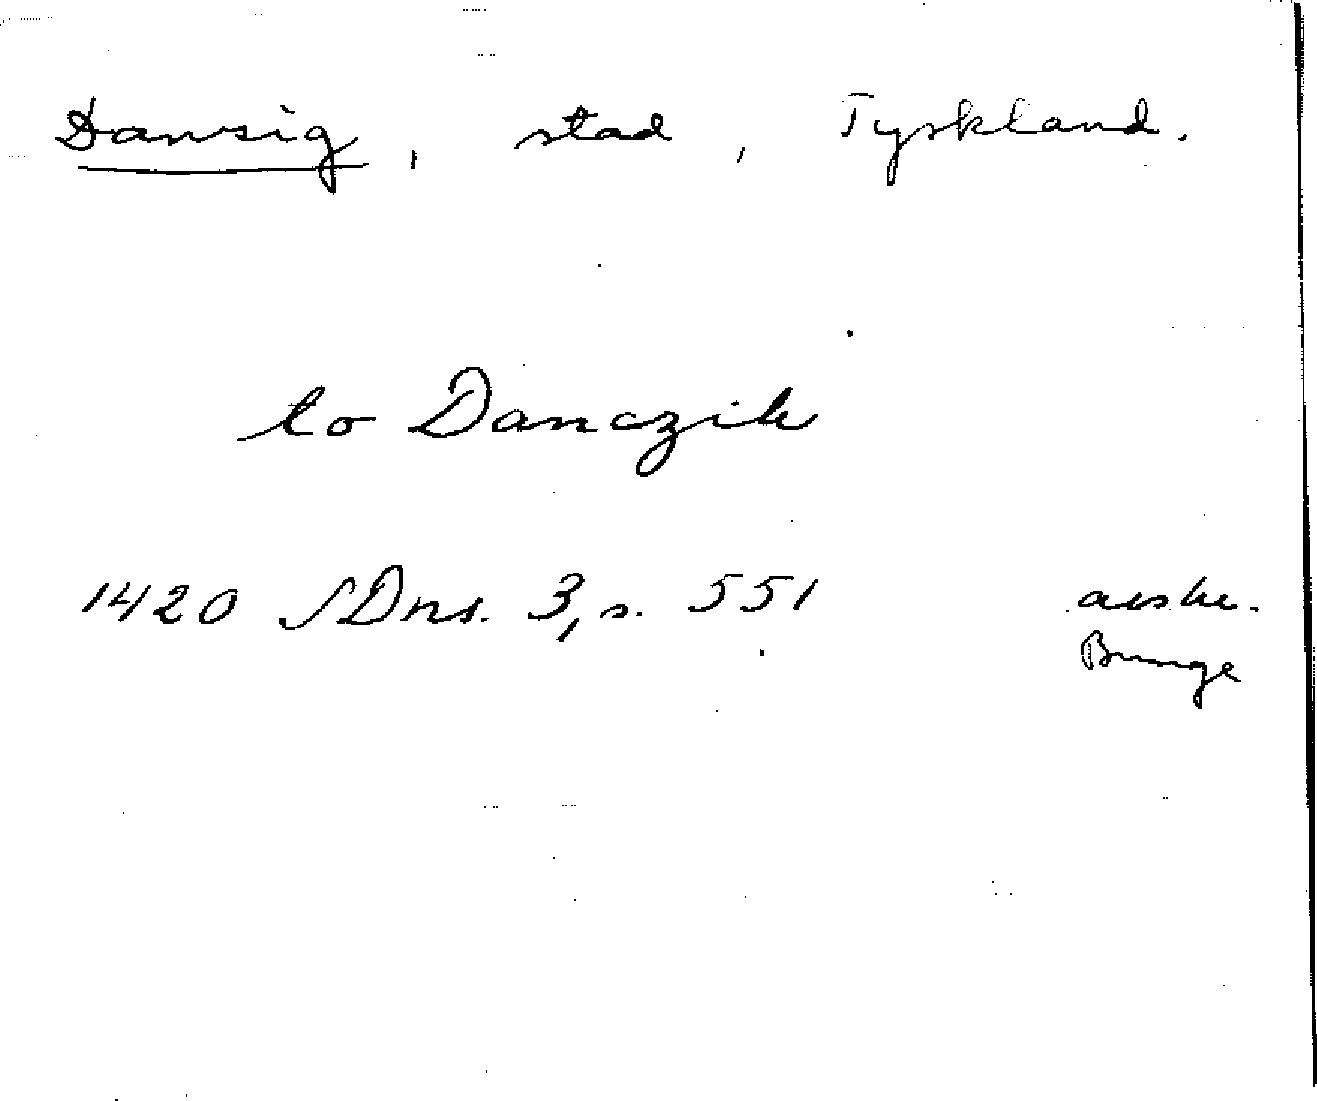 Danzig, stad, Tyskland.
to Danczik
1420 SDns. 3, s. 551 avskr.
Bunge